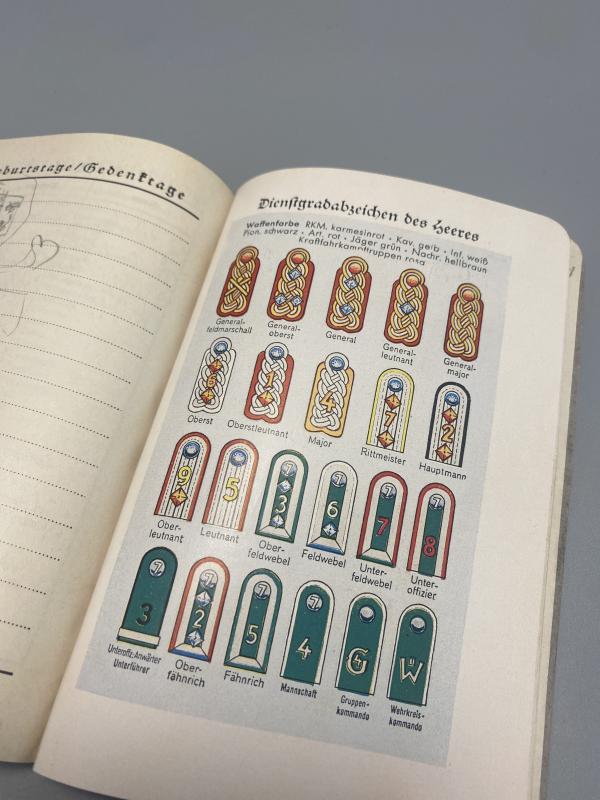 burtstage/Gedenktage
Dienstgradabzeichen des Heeres
Waffenfarbe RKM. karmesinrot • Kav. gelb • Inf. weiß
Pion. schwarz • Art. rot • Jäger grün • Nachr. hellbraun
Kraftfahrkampftruppen rosa
General-
feldmarschall
General-
oberst
General
General-
leutnant
General-
major
8
1
4
7
2
Oberst
Oberstleutnant
Major
Rittmeister
Hauptmann
9
5
3
6
7
8
Ober-
leutnant
Leutnant
Ober-
feldwebel
Feldwebel
Unter-
feldwebel
Unter-
offizier
3
2
5
4
G
W
Unteroffz.-Anwärter
Unterführer
Ober-
fähnrich
Fähnrich
Mannschaft
Gruppen-
kommando
Wehrkreis-
kommando